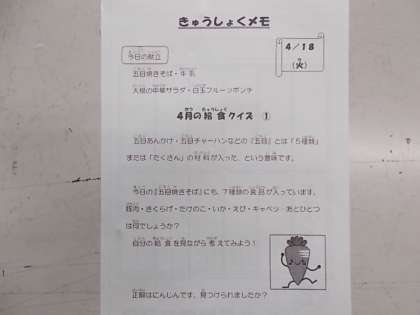 きゅうしょくメモ
4/18
(火)
今日の献立
五目焼きそば・牛乳
大根の中華サラダ・白玉フルーツポンチ
4月の給食クイズ ①
五目あんかけ・五目チャーハンなどの『五目』とは「5種類」
または「たくさん」の材料が入った、という意味です。
今日の『五目焼きそば』にも、7種類の食品が入っています。
豚肉・きくらげ・たけのこ・いか・えび・キャベツ あとひとつ
は何でしょうか?
自分の給食を見ながら考えてみよう!
正解はにんじんです。見つけられましたか?